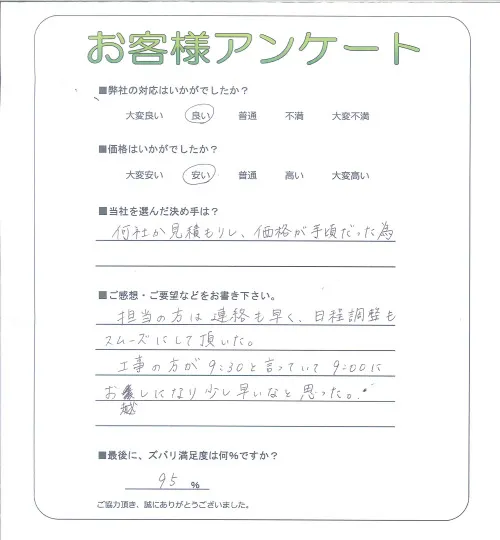 お客様アンケート
■弊社の対応はいかがでしたか？
大変良い 良い 普通 不満 大変不満
■価格はいかがでしたか？
大変安い 安い 普通 高い 大変高い
■当社を選んだ決め手は？
何社か見積もりし、価格が手頃だった為
■ご感想・ご要望などをお書き下さい。
担当の方は連絡も早く、日程調整も
スムーズにして頂いた。
工事の方が9:30と言っていて9:00に
お越しになり少し早いなと思った。
■最後に、ズバリ満足度は何%ですか？
95 %
ご協力頂き、誠にありがとうございました。